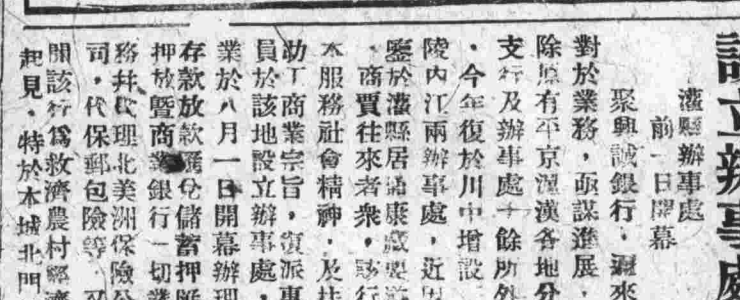 設立辦事處
灌縣辦事處
前一日開幕
聚興誠銀行，邇來
對於業務，亟謀進展，
除原有平京滬漢各地分
支行及辦事處十餘所外
，今年復於川中增設
陵內江兩辦事處，近因
鑒於灌縣居通康藏要道
，商賈往來者衆，該行
本服務社會精神，及扶
助工商業宗旨，復派專
員於該地設立辦事處，
業於八月一日開幕辦理
存款放款匯兌儲蓄押匯
押放暨商業銀行一切業
務幷代理北美洲保險公
司，代保郵包險等，
聞該行爲救濟農村經濟
起見，特於本城北門